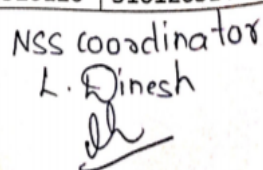 NSS coordinator
L. Dinesh